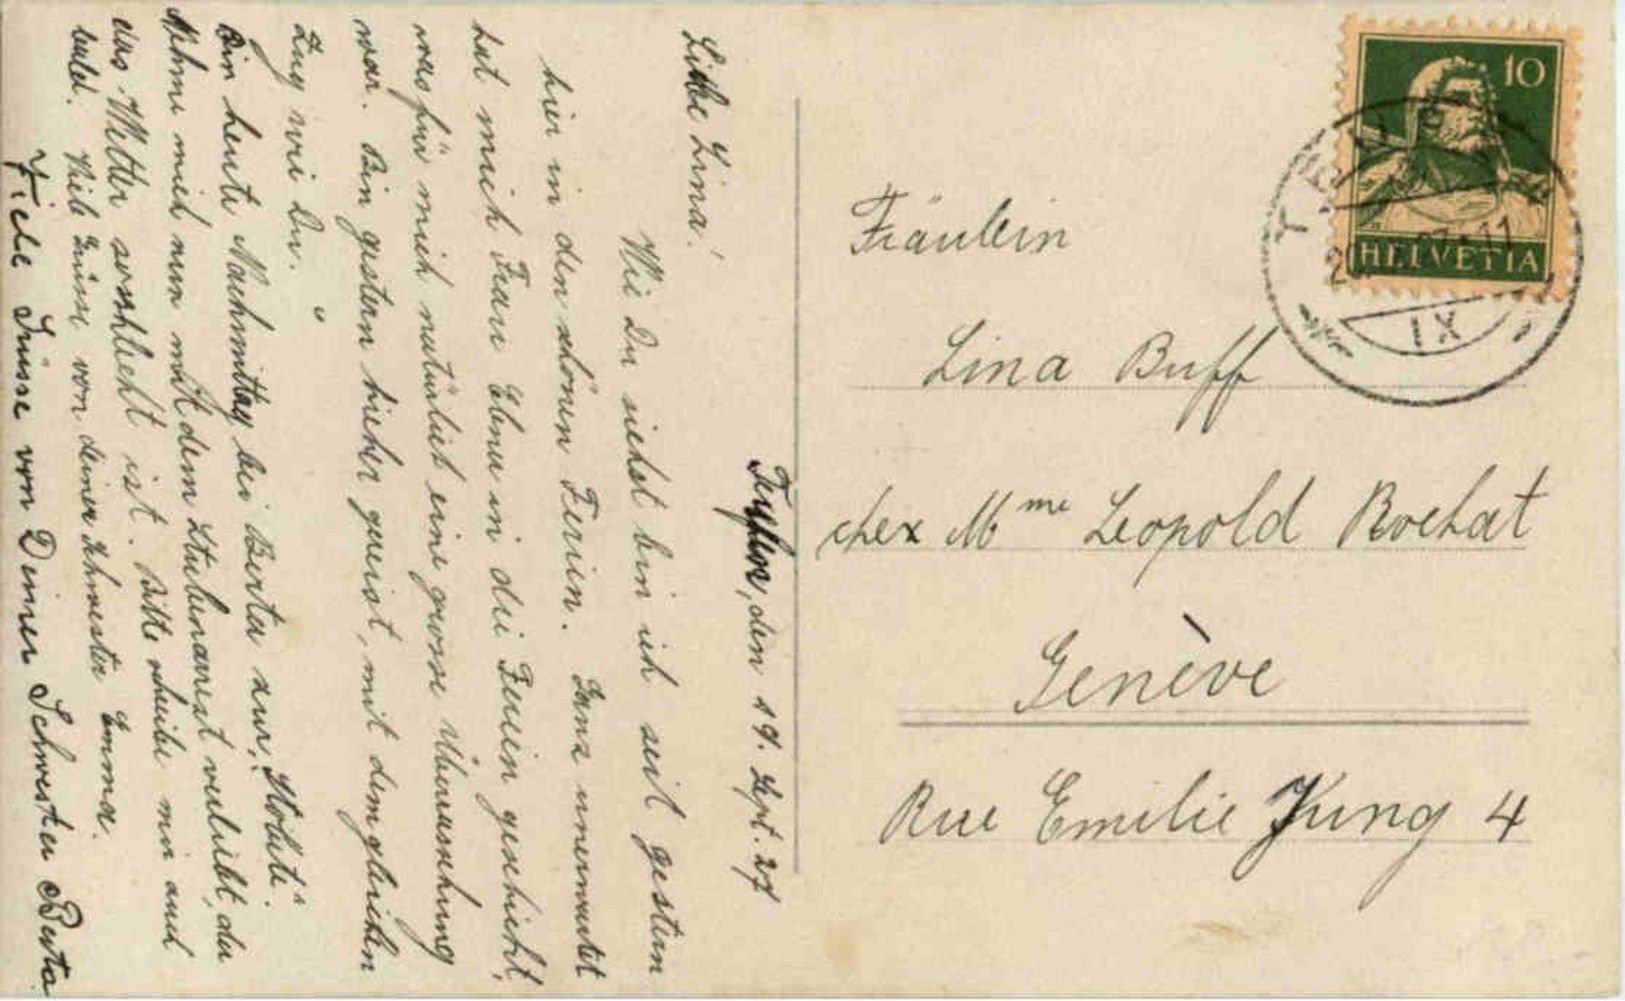 Teufen, den 19. Sept. 27
Liebe Lina!
Wie Du siehst bin ich seit gestern
hier in den schönen Ferien. Ganz unerwartet
hat mich Frau Ebner in die Ferien geschickt,
was für mich natürlich eine grosse Überraschung
war. Bin gestern hieher gereist, mit dem gleichen
Zug wie Du.
Bin heute Nachmittag bei Berta zur "Stobete".
Nehme mich nun mit dem Stubenarrest verliebt, da
das Wetter so schlecht ist. Bitte schreibe mir auch
bald. Viele Grüsse von deiner Schwester Emma.
Viele Grüsse von Deiner Schwester Berta
Fräulein
Lina Buff
chez Mme Leopold Rochat
Genève
Rue Emilie Jung 4
10
HELVETIA
IX